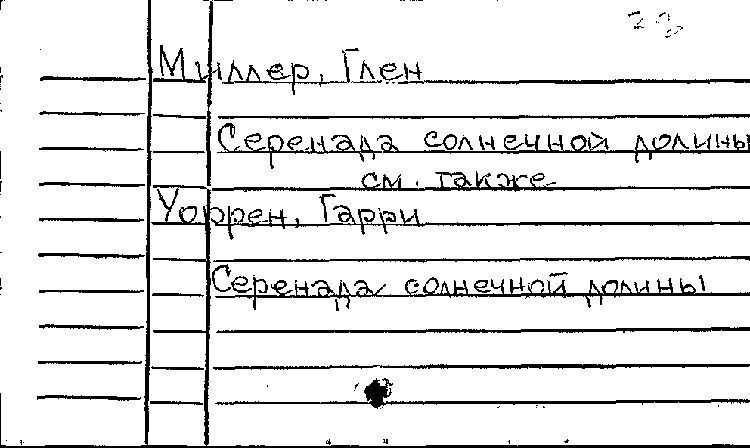 Миллер, Глен
Серенада солнечной долины
см. также
Уоррен, Гарри
Серенада солнечной долины